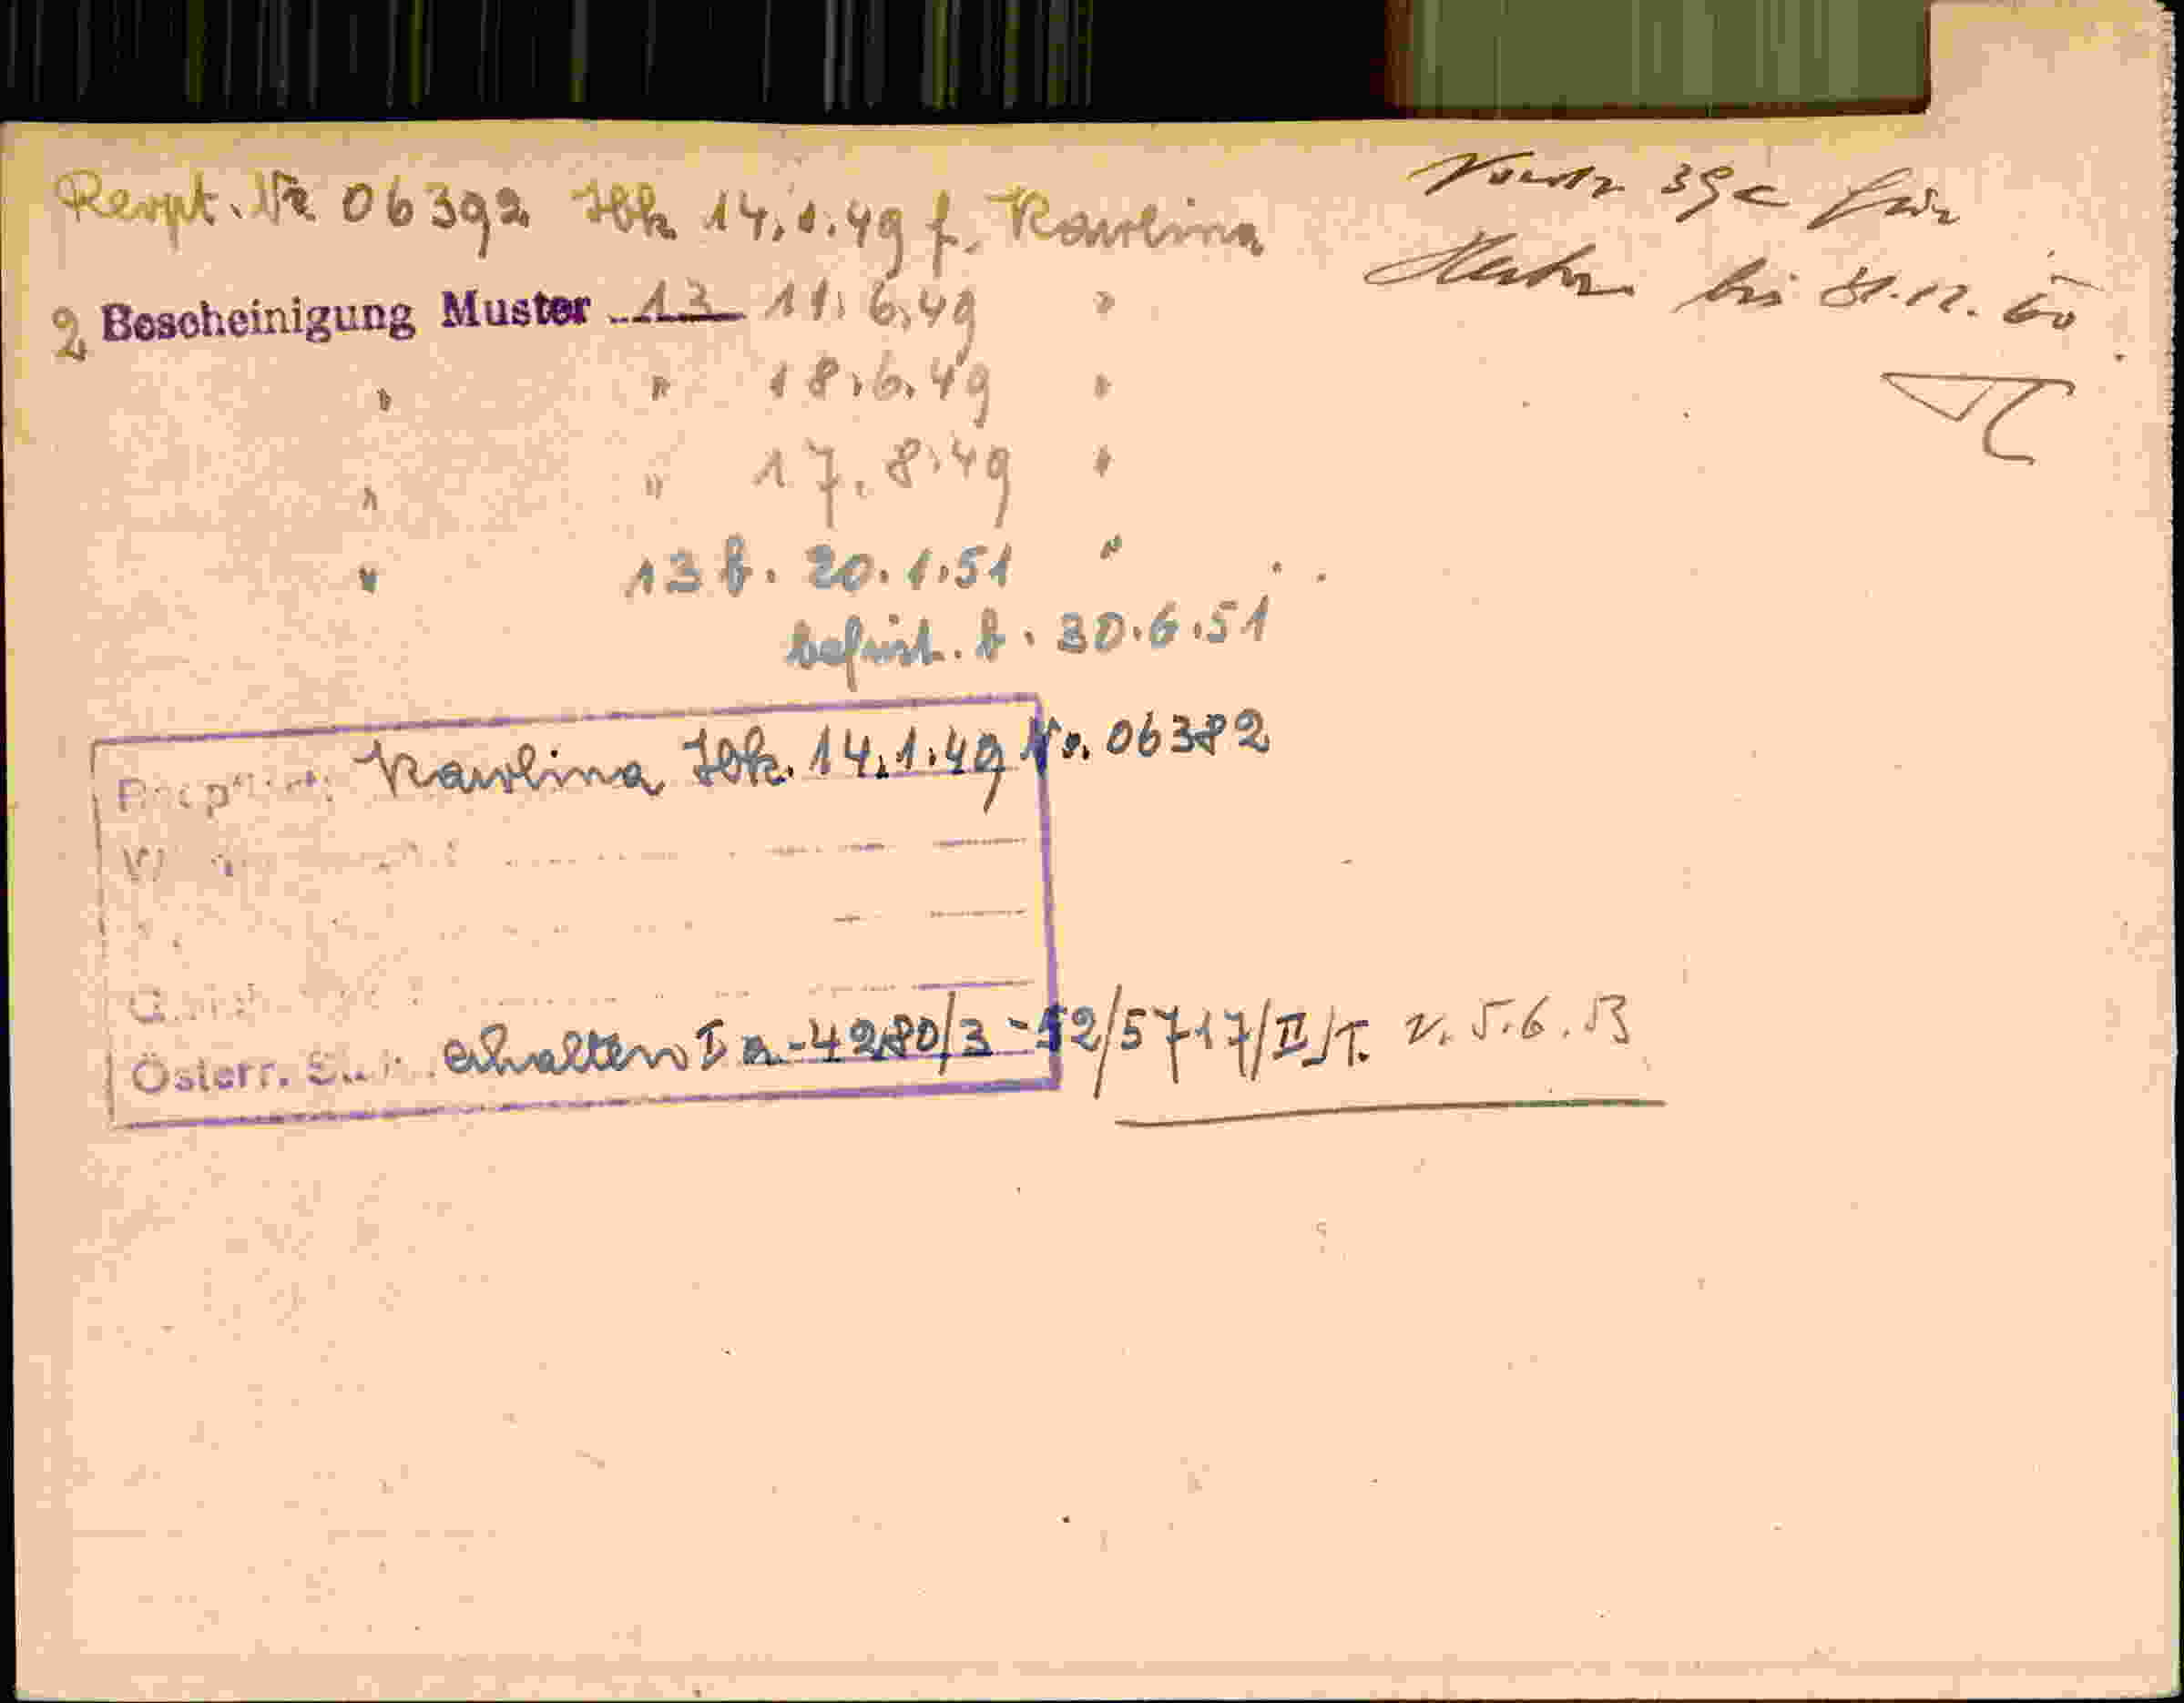 Respt. Nr 06392 Ibk 14.1.49 f. Karolina
39c für
bis 31.12.60
2 Bescheinigung Muster 13 11.6.49 "
" " 18.6.49 "
" " 17.8.49 "
" 13 b. 20.1.51 "
befrist. b. 30.6.51
Karolina Ibk. 14.1.49 Nr. 06382
Österr. erhalten I a-4280/3-52/5717/II/T. v. 5.6.53